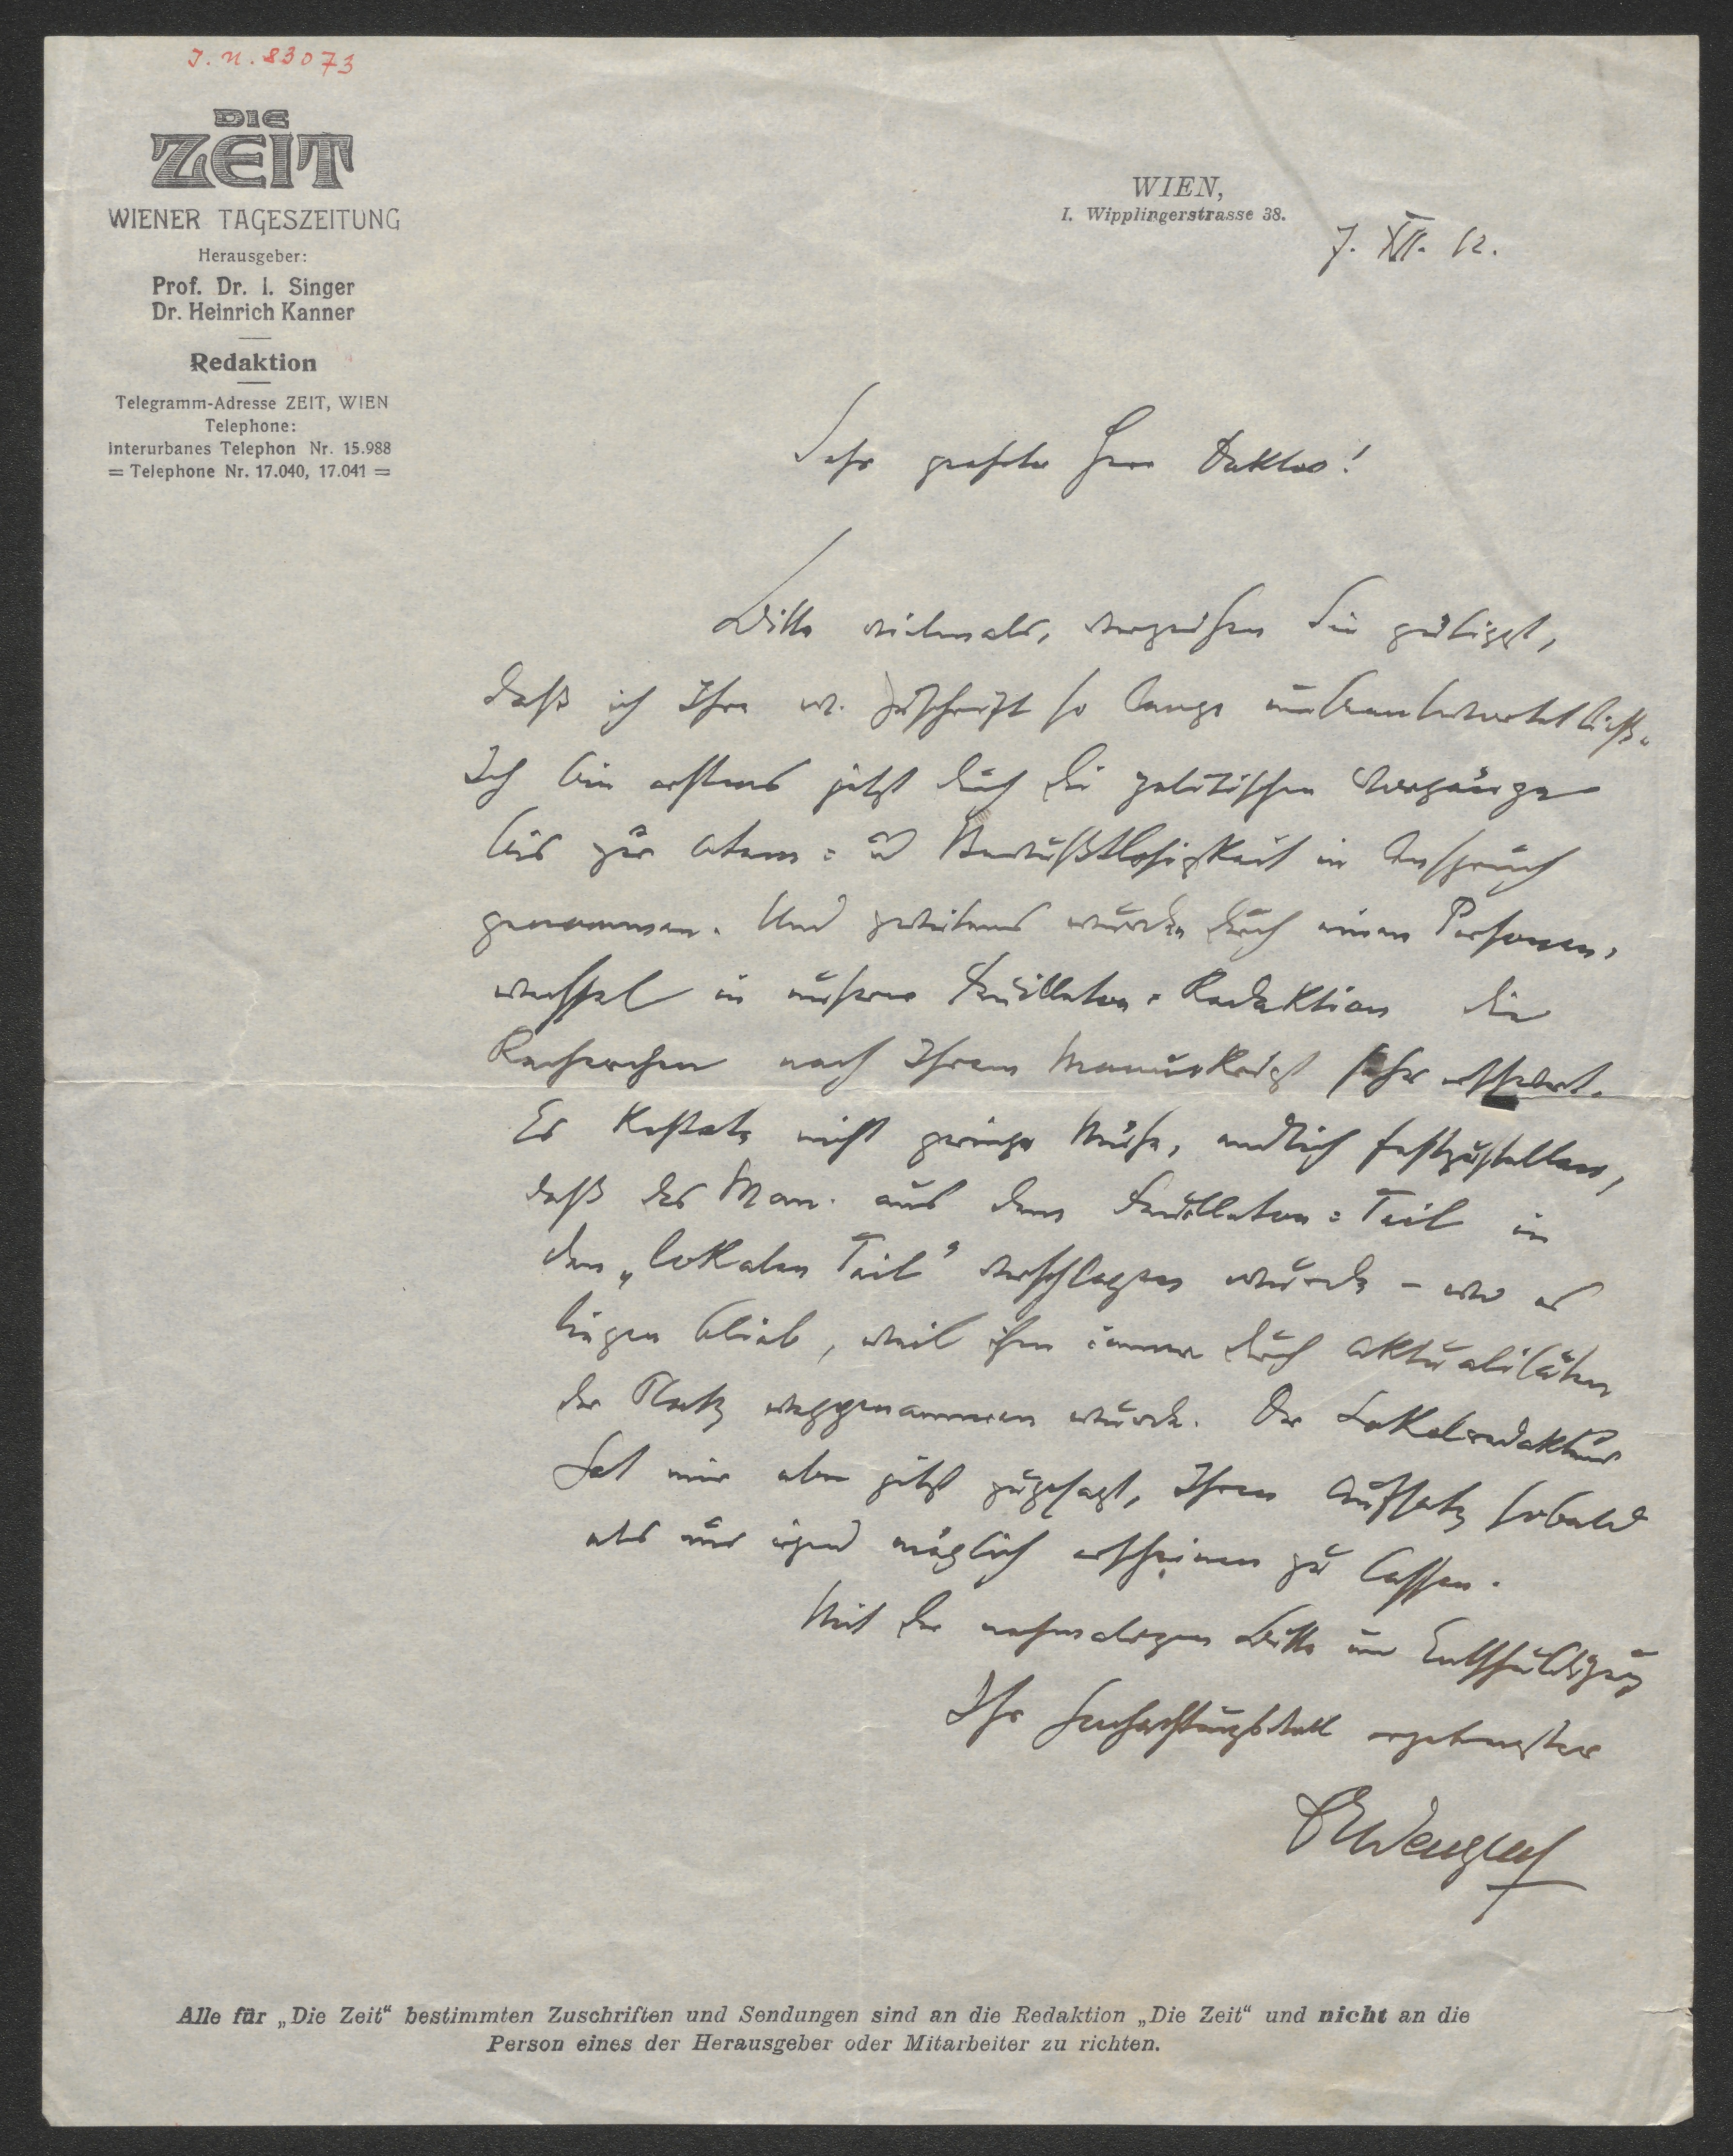 J. N. 83073
DIE
ZEIT
WIENER TAGESZEITUNG
Herausgeber:
Prof. Dr. I. Singer
Dr. Heinrich Kanner
Redaktion
Telegramm-Adresse ZEIT, WIEN
Telephone:
Interurbanes Telephon Nr. 15.988
= Telephone Nr. 17.040, 17.041 =
WIEN,
I. Wipplingerstrasse 38.
7. XII. 12.
Sehr geehrter Herr Doktor!
Bitte vielmals, verzeihen Sie gütigst,
daß ich Ihre w. Zuschrift so lange unbeantwortet ließ.
Ich bin erstens jetzt durch die politischen Vorgänge
bis zur Atem= u Bewußtlosigkeit in Anspruch
genommen. Und zweitens wurden durch einen Personen-
wechsel in unserer Feuilleton=Redaktion die
Recherchen nach Ihrem Manuskript sehr erschwert.
Es kostete nicht geringe Mühe, endlich festzustellen,
daß das Man. aus dem Feuilleton=Teil in
den „lokalen Teil" verschlagen wurde – wo es
liegen blieb, weil ihm immer durch Aktualitäten
der Platz weggenommen wurde. Der Lokalredakteur
hat mir aber jetzt zugesagt, Ihren Aufsatz sobald
als nur irgend möglich erscheinen zu lassen.
Mit der nochmaligen Bitte um Entschuldigung
Ihr hochachtungsvoll ergebenster
EWengraf
Alle für „Die Zeit“ bestimmten Zuschriften und Sendungen sind an die Redaktion „Die Zeit“ und nicht an die
Person eines der Herausgeber oder Mitarbeiter zu richten.